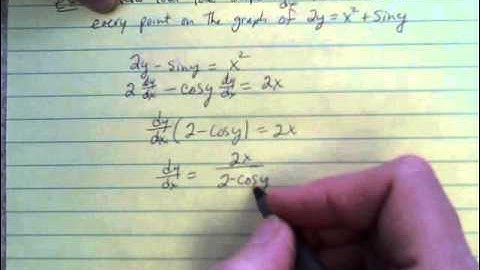 every point on the graph of 2y = x² + siny
2y - siny = x²
2 dy/dx - cosy dy/dx = 2x
dy/dx (2 - cosy) = 2x
dy/dx = 2x / 2-cosy